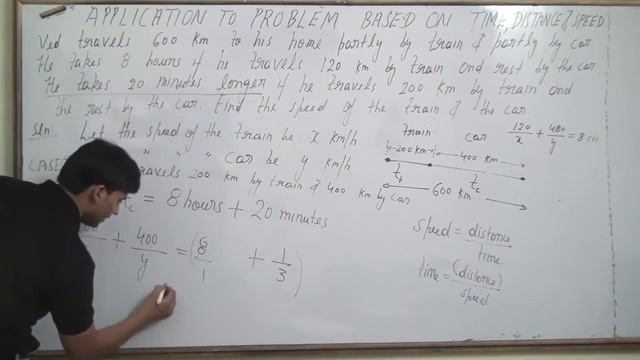 APPLICATION TO PROBLEM BASED ON TIME, DISTANCE & SPEED
Ved travels 600 km to his home partly by train & partly by car.
He takes 8 hours if he travels 120 km by train and rest by the car.
He takes 20 minutes longer if he travels 200 km by train and
the rest by the car. Find the speed of the train & the car.
Sln: Let the speed of the train be x km/h
" " " car be y km/h
train car 120/x + 480/y = 8
200 km 400 km
t_t t_c
600 km
CASE travels 200 km by train & 400 km by car
t_c = 8 hours + 20 minutes
+ 400/y = (8/1 + 1/3)
speed = distance/time
time = (distance)/speed